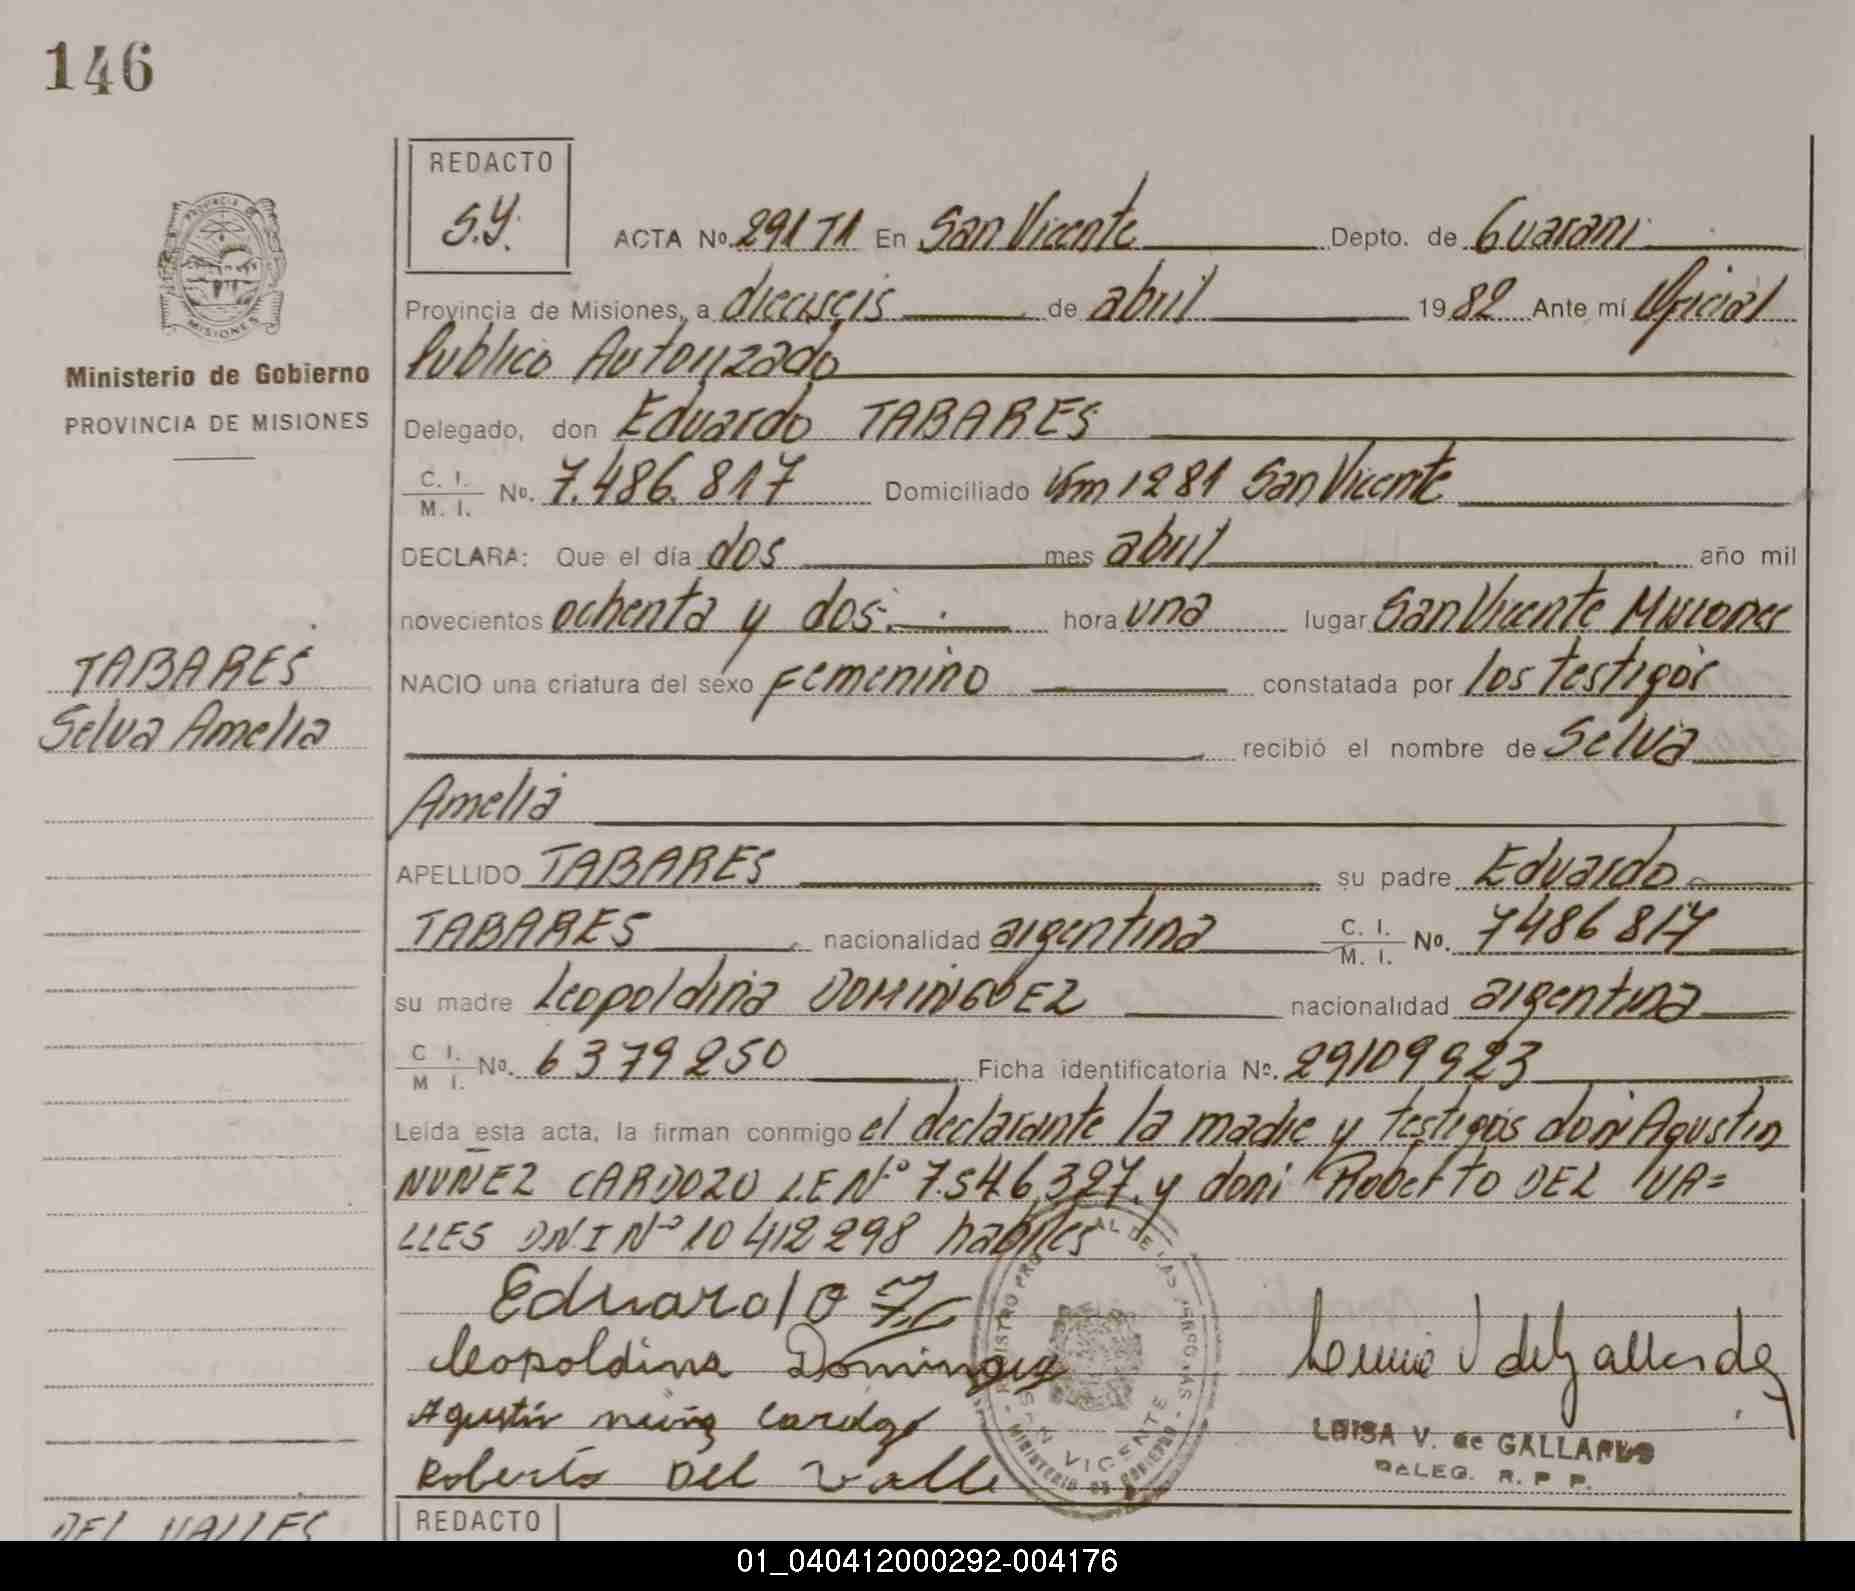 146
REDACTO
S.Y.
ACTA No. 291 T1 En San Vicente Depto. de Guarani
Provincia de Misiones, a dieciseis de abril 1982 Ante mí Oficial
Publico Autorizado
Ministerio de Gobierno
PROVINCIA DE MISIONES
Delegado, don Eduardo TABARES
C. I. / M. I. No. 7.486.817 Domiciliado Km 1281 San Vicente
DECLARA: Que el día dos mes abril año mil
novecientos ochenta y dos hora una lugar San Vicente Misiones
TABARES
Selva Amelia
NACIO una criatura del sexo femenino constatada por los testigos
recibió el nombre de Selva
Amelia
APELLIDO TABARES su padre Eduardo
TABARES nacionalidad argentina C. I. / M. I. No. 7486817
su madre Leopoldina DOMINGUEZ nacionalidad argentina
C I. / M I. No. 6379250 Ficha identificatoria Nº. 29109923
Leída esta acta, la firman conmigo el declarante la madre y testigos don Agustin
NUÑEZ CARDOZO L.E Nº 7.546.327 y don Roberto DEL VA=
LLES DNI Nº 10 412 298 habiles
Eduardo
Leopoldina Dominguez
Agustin nuñez Cardozo
Roberto Del Valle
MINISTERIO DE GOBIERNO
SAN VICENTE
LUISA V. de GALLARDO
DALEG. R. P. P.
DEL VALLES
REDACTO
01_040412000292-004176